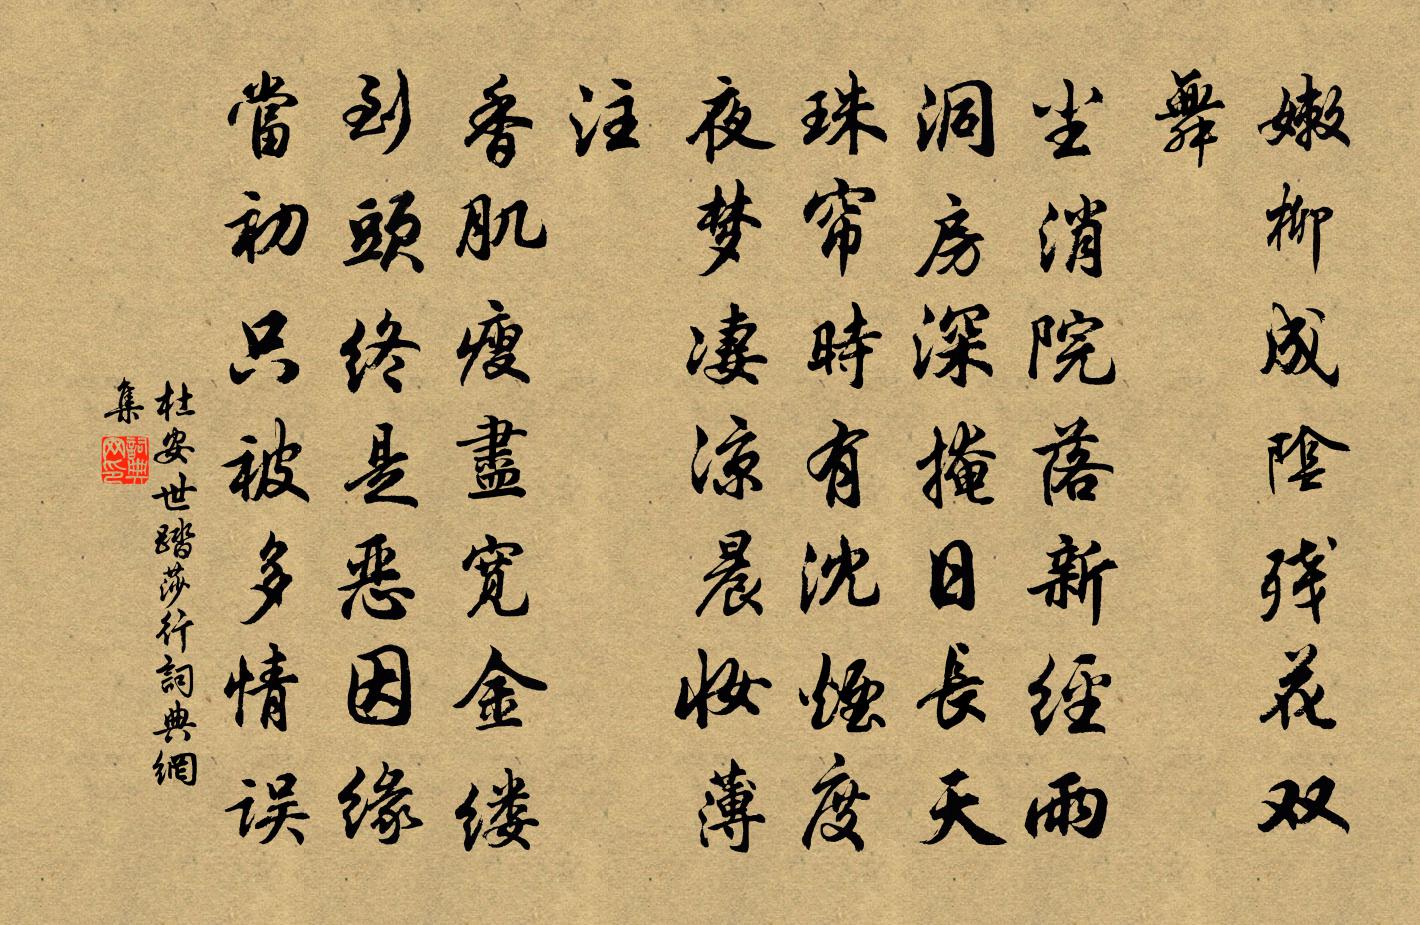 嫩柳成陰残花双
舞
尘消院落新經雨
洞房深掩日長天
珠帘時有沈煙度
夜梦凄凉晨妆薄
注
香肌瘦盡寛金缕
到頭终是恶因缘
當初只被多情误
杜安世踏莎行詞典網
集
詞典网印